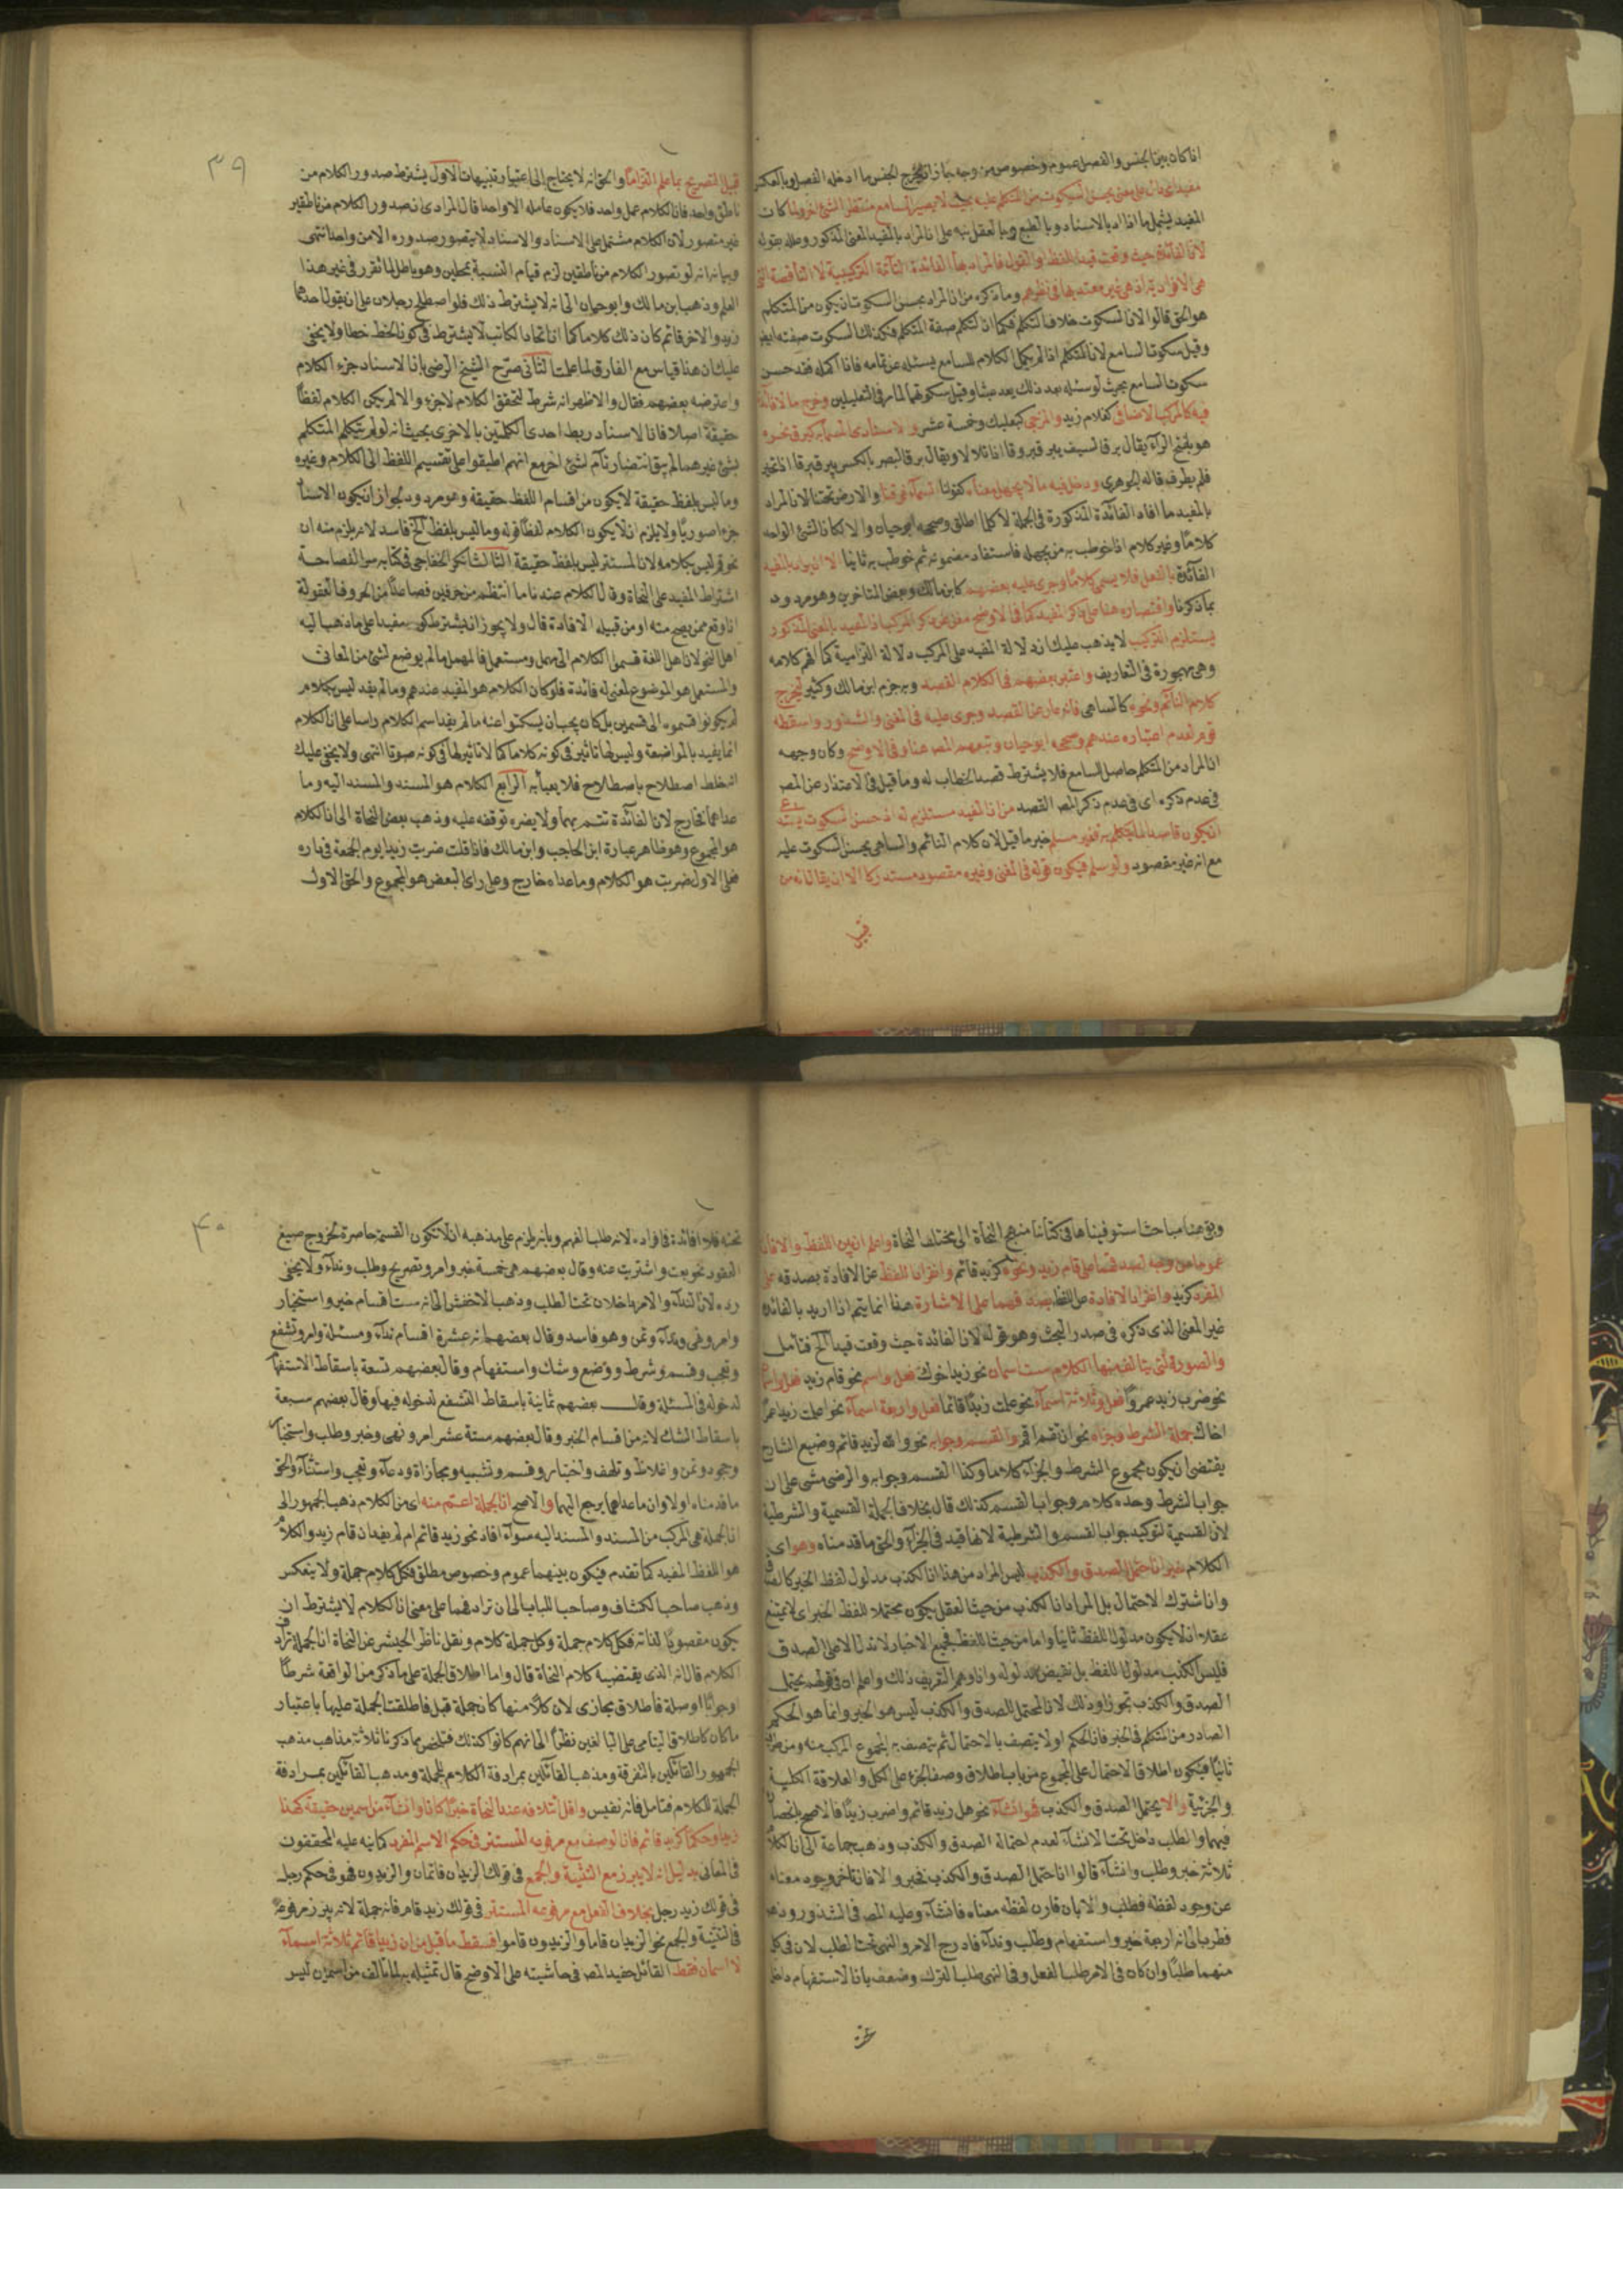 اذا كان بين الجنس والفصل عموم وخصوص من وجه جاز ان يخرج الجنس ما ادخله الفصل وبالعكس
مفيد اى دال على معنى يحسن السكوت من المتكلم عليه بحيث لا يصير السامع منتظرا لشئ اخر ولما كان
المفيد يشمل ما افاد بالاسناد وبالطبع وبالعقل نبه على ان المراد بالمفيد المعنى المذكور وعلله بقوله
لان الفائدة حيث وقعت قيدا للفظ او القول فالمراد بها الفائدة التامة التركيبية لا الناقصة التى
هى الافرادية اذ هى غير معتد بها فى نظرهم وما ذكره من ان المراد بحسن السكوت ان يكون من المتكلم
هو الحق قالوا لان السكوت خلاف التكلم فكما ان التكلم صفة المتكلم فكذلك السكوت صفته ايضا
وقيل سكوت السامع لان المتكلم اذا لم يكمل الكلام للسامع يسئله عن تمامه فاذا اكمله فقد حسن
سكوت السامع بحيث لو سئله بعد ذلك يعد عبثا وقيل سكوتهما لما مر فى التعليلين وخرج ما لا فائدة
فيه كالمركب الاضافى كغلام زيد والمزجى كبعلبك وخمسة عشر والاسنادى المسمى به كبرق نحره
هو بفتح الراء يقال برق السيف يبرق بروقا اذا تلالا ويقال برق البصر بالكسر يبرق برقا اذا تحير
فلم يطرف قاله الجوهرى ودخل فيه ما لا يجهل معناه كقولنا السماء فوقنا والارض تحتنا لان المراد
بالمفيد ما افاد الفائدة المذكورة فى الجملة لا كلما اطلق وصححه ابو حيان والا لكان الشئ الواحد
كلاما وغير كلام اذا خوطب به من يجهله فاستفاد مضمونه ثم خوطب به ثانيا الا ان يراد بالمفيد
الفائدة بالفعل فلا يسمى كلاما وجرى عليه بعضهم كابن مالك وبعض المتاخرين وهو مردود
بما ذكرنا واقتصاره هنا على ذكر المفيد كما فى الاوضح مغن عن ذكر المركب اذ المفيد بالمعنى المذكور
يستلزم التركيب لا يذهب عليك ان دلالة المفيد على المركب دلالة التزامية كما افهم كلامه
وهى مهجورة فى التعاريف واعتبر بعضهم فى الكلام القصد وبه جزم ابن مالك وكثير ليخرج
كلام النائم ونحوه كالساهى فانه عار عن القصد وجرى عليه فى المغنى والشذور واسقطه
قوم لعدم اعتباره عندهم وصححه ابو حيان وتبعهم المص هنا وفى الاوضح وكان وجهه
ان المراد من المتكلم حاصل للسامع فلا يشترط قصد الخطاب له وما قيل فى الاعتذار عن المص
فى عدم ذكره اى فى عدم ذكر المص القصد من ان المفيد مستلزم له اذ حسن السكوت يستدعى
ان يكون قاصدا لما يتكلم به فغير مسلم خبر ما قيل لان كلام النائم والساهى يحسن السكوت عليه
مع انه غير مقصود ولو سلم فيكون قوله فى المغنى وغيره مقصود مستدركا الا ان يقال انه من
قبيل
٣٩
قبيل التصريح بما علم التزاما والحق انه لا يحتاج الى اعتبار تنبيهات الاول يشترط صدور الكلام من
ناطق واحد فان الكلام عمل واحد فلا يكون عامله الا واحدا قال المرادى ان صدور الكلام من ناطقين
غير متصور لان الكلام مشتمل على الاسناد والاسناد لا يتصور صدوره الا من واحد انتهى
وبيانه انه لو تصور الكلام من ناطقين لزم قيام النسبة بمحلين وهو باطل لما تقرر فى غير هذا
العلم وذهب ابن مالك وابو حيان الى انه لا يشترط ذلك فلو اصطلح رجلان على ان يقول احدهما
زيد والاخر قائم كان ذلك كلاما كما ان اتحاد الكاتب لا يشترط فى كون الخط خطا ولا يخفى
عليك ان هذا قياس مع الفارق لما علمت الثانى صرح الشيخ الرضى بان الاسناد جزء الكلام
واعترضه بعضهم فقال والاظهر انه شرط لتحقق الكلام لا جزء والا لم يكن الكلام لفظا
حقيقة اصلا فان الاسناد ربط احدى الكلمتين بالاخرى بحيث انه لو لم يتكلم المتكلم
بشئ غيرهما لم يبق انتضار تام لشئ اخر مع انهم اطبقوا على تقسيم اللفظ الى الكلام وغيره
وما ليس بلفظ حقيقة لا يكون من اقسام اللفظ حقيقة وهو مردود لجواز ان يكون الاسناد
جزء اصوريا ولا يلزم ان لا يكون الكلام لفظا قوله وما ليس بلفظ الخ فاسد لانه يلزم منه ان
نحو قم ليس بكلام لان المستتر ليس بلفظ حقيقة الثالث انكر الخفاجى فى كتابه سر الفصاحة
اشتراط المفيد على النحاة وقال الكلام عندنا ما انتظم من حرفين فصاعدا من الحروف المعقولة
اذا وقع ممن يصح منه او من قبيله الافادة قال ولا يجوز ان يشترط كونه مفيدا على ما ذهب اليه
اهل النحو لان اهل اللغة قسموا الكلام الى مهمل ومستعمل فالمهمل ما لم يوضع لشئ من المعانى
والمستعمل هو الموضوع لمعنى له فائدة فلو كان الكلام هو المفيد عندهم وما لم يفد ليس بكلام
لم يكونوا قسموه الى قسمين بل كان يجب ان يسكتوا عنه ما لم يفد اسم الكلام راسا على ان الكلام
انما يفيد بالمواضعة وليس لها تاثير فى كونه كلاما كما لا تاثير لها فى كونه صوتا انتهى ولا يخفى عليك
انه خلط اصطلاح باصطلاح فلا يعبأ به الرابع الكلام هو المسند والمسند اليه وما
عداهما خارج لان الفائدة تتم بهما ولا يضره توقفه عليه وذهب بعض النحاة الى ان الكلام
هو المجموع وهو ظاهر عبارة ابن الحاجب وابن مالك فاذا قلت ضربت زيدا يوم الجمعة فى داره
فعلى الاول ضربت هو الكلام وما عداه خارج وعلى راى البعض هو المجموع والحق الاول
وبقى هنا مباحث استوفيناها فى كتابنا منهج النحاة الى مختلف النحاة واعلم ان بين اللفظ والافادة
عموما من وجه لصدقهما على قام زيد ونحوه كزيد قائم وانفراد اللفظ عن الافادة بصدقه على
المفرد كزيد وانفراد الافادة عن اللفظ بصدقهما على الاشارة هذا انما يتم اذا اريد بالفائدة
غير المعنى الذى ذكره فى صدر البحث وهو قوله لان الفائدة حيث وقعت قيدا الخ فتامل
والصور التى يتالف منها الكلام ست اسمان نحو زيد اخوك فعل واسم نحو قام زيد فعل واسمان
نحو ضرب زيد عمروا فعل وثلاثة اسماء نحو علمت زيدا قائما فعل واربعة اسماء نحو اعلمت زيدا عمرا
اخاك جملة الشرط وجزاه نحو ان تقم اقم والقسم وجوابه نحو والله لزيد قائم وضيع الشارح
يقتضى ان يكون مجموع الشرط والجزاء كلاما وكذا القسم وجوابه والرضى مشى على ان
جواب الشرط وحده كلام وجواب القسم كذلك قال بخلاف الجملة القسمية والشرطية
لان القسمية لتوكيد جواب القسم والشرطية لانها قيد فى الجزاء والحق ما قدمناه وهو اى
الكلام خبر ان احتمل الصدق والكذب ليس المراد من هذا ان الكذب مدلول لفظ الخبر كالصدق
وان اشترك الاحتمال بل المراد ان الكذب من حيث العقل يكون محتملا للفظ الخبر اى لا يمتنع
عقلا ان لا يكون مدلول اللفظ ثابتا واما من حيث اللفظ فجميع الاخبار لا تدل الا على الصدق
فليس الكذب مدلولا للفظ بل نقيض مدلوله وان اوهم التعريف ذلك واعلم ان فى قولهم يحتمل
الصدق والكذب تجوزا وذلك لان المحتمل للصدق والكذب ليس هو الخبر وانما هو الحكم
الصادر من المتكلم فى الخبر فان الحكم اولا يتصف بالاحتمال ثم يتصف به المجموع المركب منه ومن طرفيه
ثانيا فيكون اطلاق الاحتمال على المجموع من باب اطلاق وصف الجزء على الكل والعلاقة الكلية
والجزئية والا يحتمل الصدق والكذب فهو انشاء نحو هل زيد قائم واضرب زيدا فالاصح انحصاره
فيهما والطلب داخل تحت الانشاء لعدم احتماله الصدق والكذب وذهب جماعة الى ان الكلام
ثلاثة خبر وطلب وانشاء قالوا ان احتمل الصدق والكذب فخبر والا فان تاخر وجود معناه
عن وجود لفظه فطلب والا بان قارن لفظه معناه فانشاء وعليه المص فى الشذور وذهب
قطرب الى انه اربعة خبر واستفهام وطلب ونداء فادرج الامر والنهى تحت الطلب لان فى كل
منهما طلبا وان كان فى الامر طلب الفعل وفى النهى طلب الترك وضعف بان الاستفهام داخل
تحته
٤٠
تحته فلا فائدة فى افراده لانه طلب الفهم وبانه يلزم على مذهبه ان لا تكون القسمة حاصرة لخروج صيغ
العقود نحو بعت واشتريت عنه وقال بعضهم هى خمسة خبر وامر وتصريح وطلب ونداء ولا يخفى
رده لان النداء والامر داخلان تحت الطلب وذهب الاخفش الى انه ست اقسام خبر واستخبار
وامر ونهى ونداء وتمن وهو فاسد وقال بعضهم انه عشرة اقسام نداء ومسئلة وامر وتشفع
وتعجب وقسم وشرط ووضع وشك واستفهام وقال بعضهم تسعة باسقاط الاستفهام
لدخوله فى المسئلة وقال بعضهم ثمانية باسقاط التشفع لدخوله فيها وقال بعضهم سبعة
باسقاط الشك لانه من اقسام الخبر وقال بعضهم ستة عشر امر ونهى وخبر وطلب واستخبار
وجحود وتمن واغلاظ وتلهف واختبار وقسم وتشبيه ومجازاة ودعاء وتعجب واستثناء والحق
ما قدمناه اولا وان ما عداهما يرجع اليهما والاصح ان الجملة اعم منه اى من الكلام ذهب الجمهور الى
ان الجملة هى المركب من المسند والمسند اليه سواء افاد نحو زيد قائم ام لم يفد ان قام زيد والكلام
هو اللفظ المفيد كما تقدم فيكون بينهما عموم وخصوص مطلق فكل كلام جملة ولا ينعكس
وذهب صاحب الكشاف وصاحب اللباب الى ان ترادفهما على معنى ان الكلام لا يشترط ان
يكون مقصودا لذاته فكل كلام جملة وكل جملة كلام ونقل ناظر الجيش عن النحاة ان الجملة ترادف
الكلام قال انه الذى يقتضيه كلام النحاة قال واما اطلاق الجملة على ما ذكر من الواقعة شرطا
او جوابا او صلة فاطلاق مجازى لان كلا منها كان جملة قبل فاطلقت الجملة عليها باعتبار
ما كان كاطلاق اليتامى على البالغين نظرا الى انهم كانوا كذلك فتلخص مما ذكرنا ثلاثة مذاهب مذهب
الجمهور القائلين بالتفرقة ومذهب القائلين بمرادفة الكلام للجملة ومذهب القائلين بمرادفة
الجملة للكلام فتامل فانه نفيس واقل ائتلافه عند النحاة خبرا كان او انشاء من اسمين حقيقة كهذا
زيد او حكما كزيد قائم فان الوصف مع مرفوعه المستتر فى حكم الاسم المفرد كما نبه عليه المحققون
فى المعانى بدليل انه لا يبرز مع التثنية والجمع فى قولك الزيدان قائمان والزيدون فهو فى حكم رجل
فى قولك زيد رجل بخلاف الفعل مع مرفوعه المستتر فى قولك زيد قام فانه جملة لانه يبرز مرفوعه
فى التثنية والجمع نحو الزيدان قاما والزيدون قاموا فسقط ما قيل من ان زيدا قائم ثلاثة اسماء
لا اسمان فقط القائل حفيد المص فى حاشيته على الاوضح قال تمثيله به لما تالف من اسمين ليس